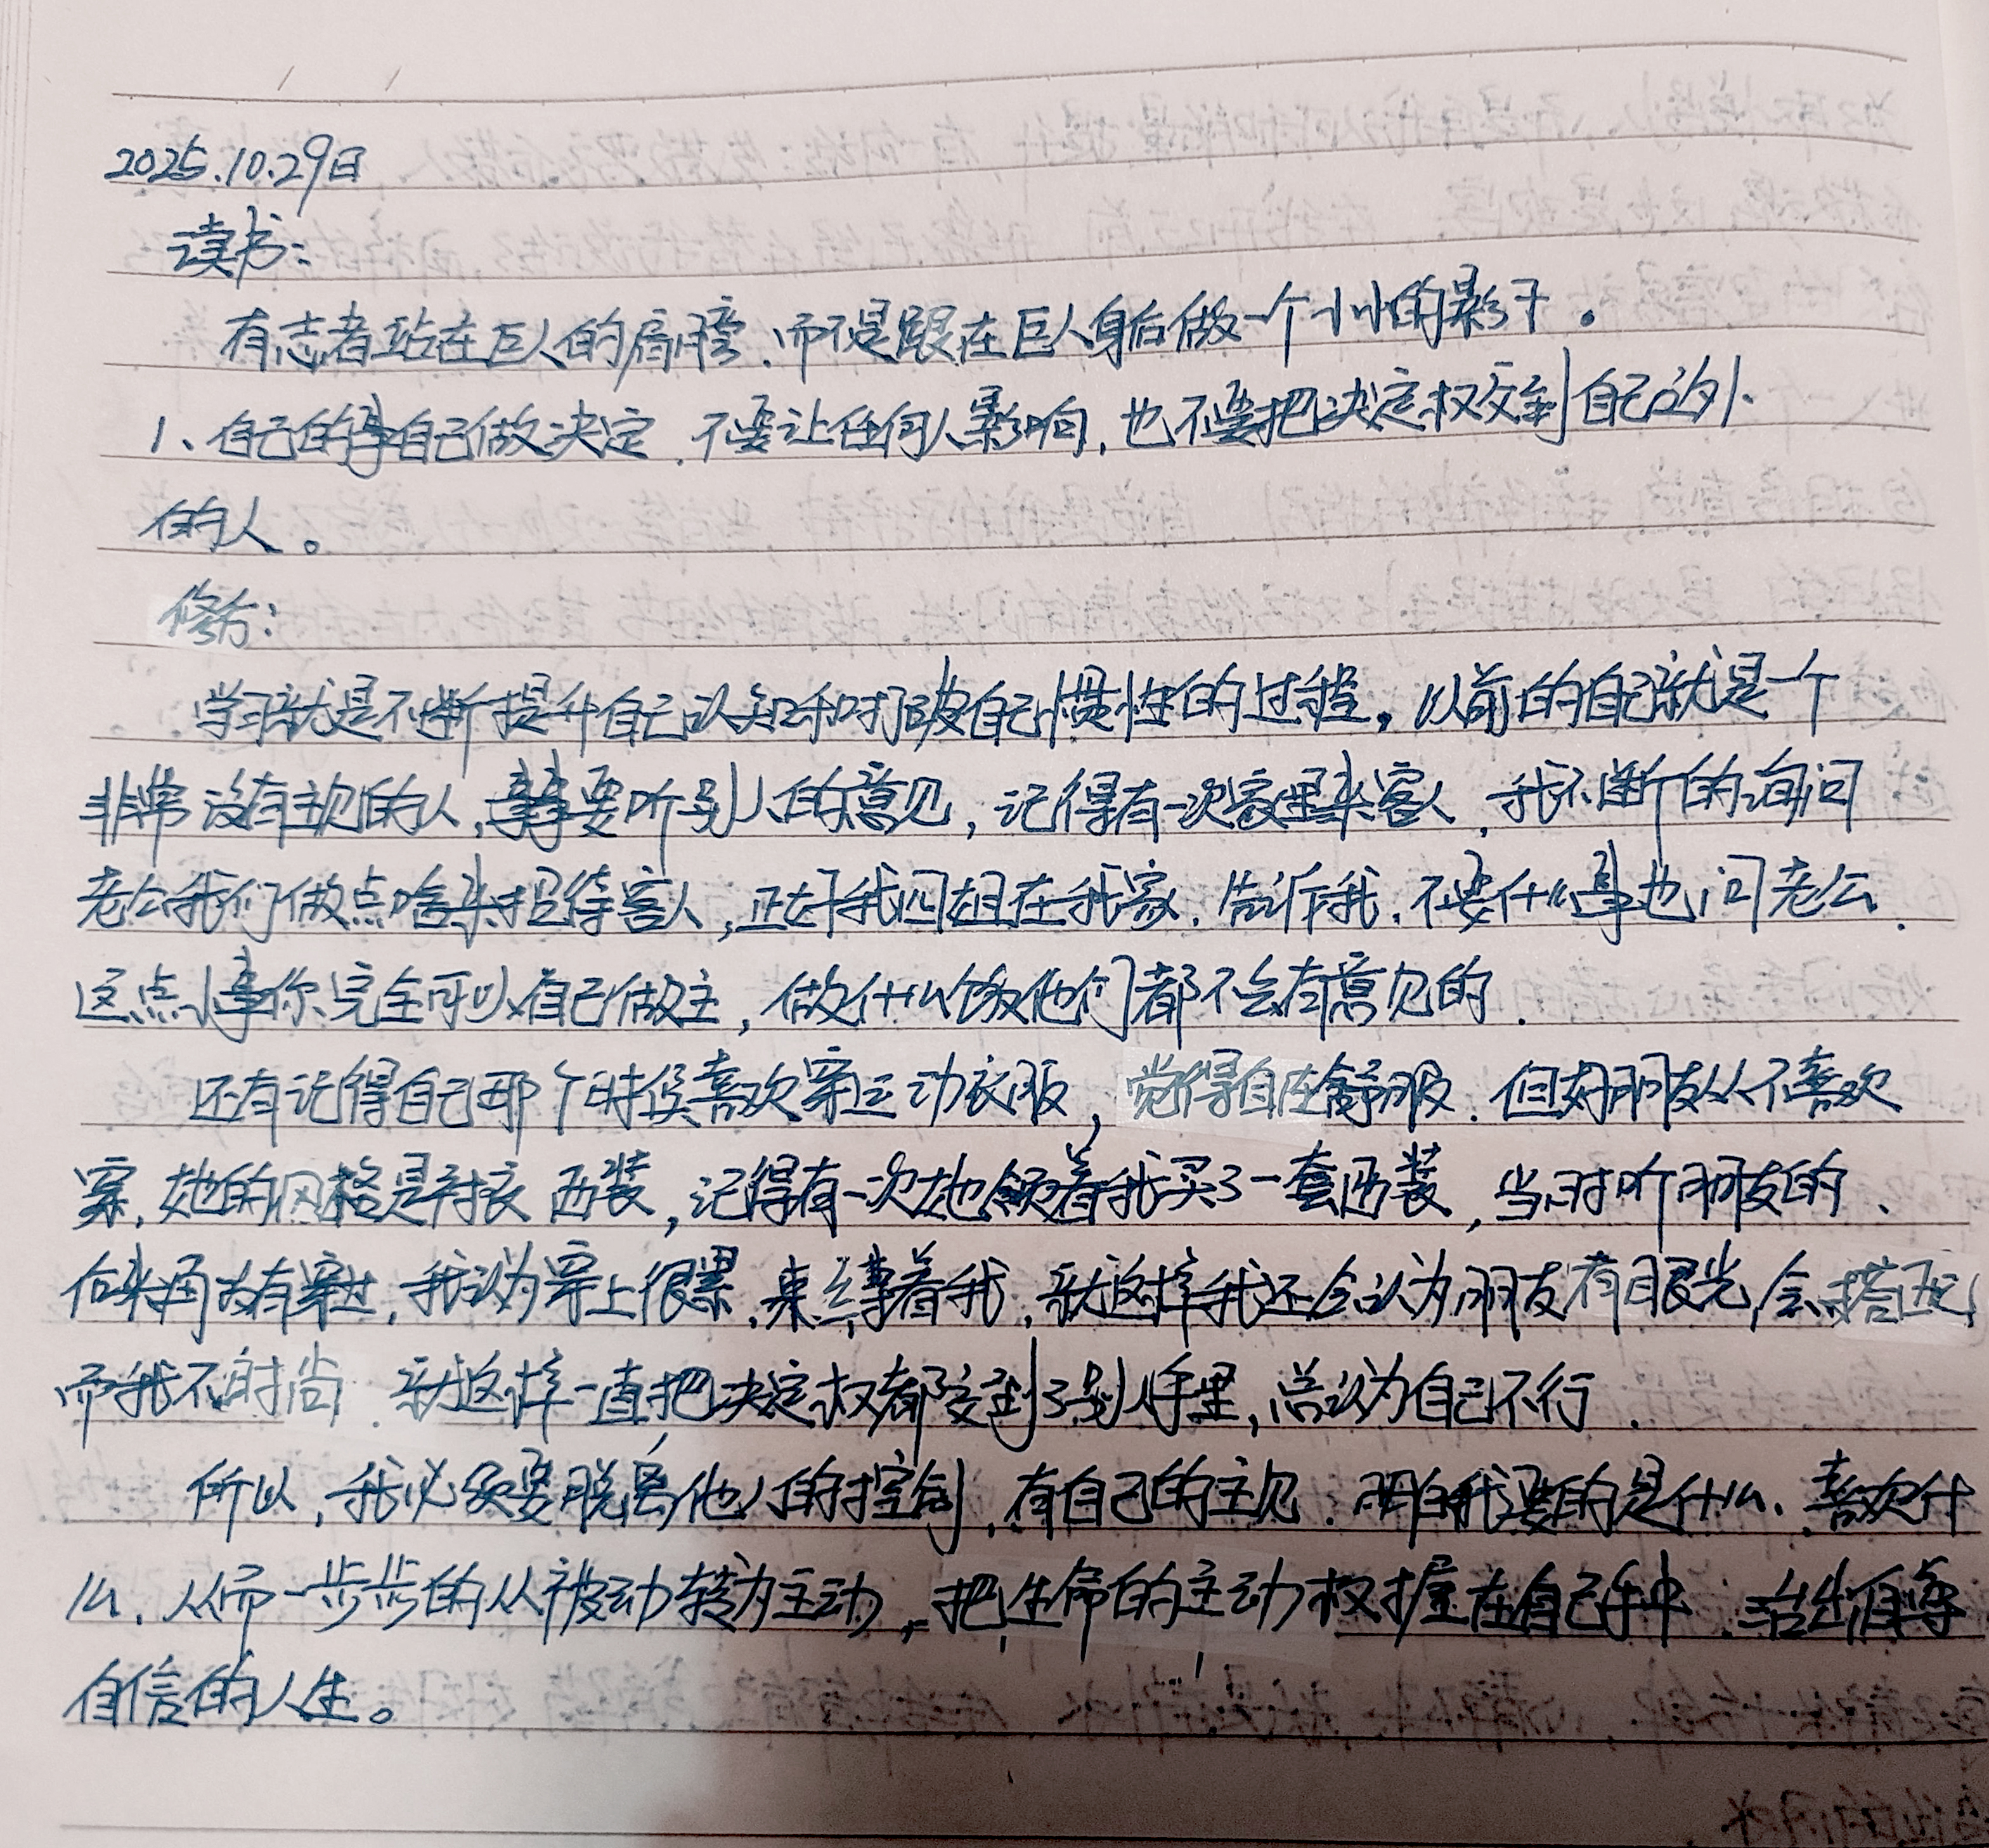 2025.10.29日
读书:
有志者站在巨人的肩膀,而不是跟在巨人身后做一个小小的影子。
1、自己的事自己做决定,不要让任何人影响,也不要把决定权交到自己之外
的人。
修行:
学习就是不断提升自己认知和打破自己惯性的过程,以前的自己就是一个
非常没有主见的人,事事要听别人的意见,记得有一次家里来客人,我不断的询问
老公我们做点啥来招待客人,正好我四姐在我家,告诉我,不要什么事也问老公,
这点小事你完全可以自己做主,做什么饭他们都不会有意见的.
还有记得自己那个时候喜欢穿运动衣服,觉得自在舒服.但好朋友从不喜欢
穿,她的风格是衬衣 西装,记得有一次她领着我买了一套西装,当时听朋友的、
后来再没有穿过,我认为穿上很累,束缚着我,就这样我还会认为朋友有眼光,会搭配,
而我不时尚.就这样一直把决定权都交到了别人手里,总认为自己不行.
所以,我必须要脱离他人的控制,有自己的主见.明白我要的是什么、喜欢什
么、从而一步步的从被动转为主动,把生命的主动权握在自己手中.活出自尊
自信的人生。